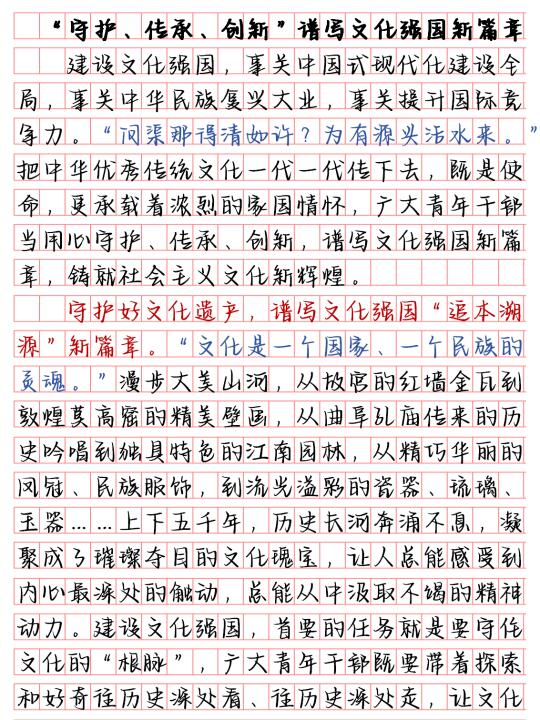 “守护、传承、创新”谱写文化强国新篇章
建设文化强国，事关中国式现代化建设全
局，事关中华民族复兴大业，事关提升国际竞
争力。“问渠那得清如许？为有源头活水来。”
把中华优秀传统文化一代一代传下去，既是使
命，更承载着浓烈的家国情怀，广大青年干部
当用心守护、传承、创新，谱写文化强国新篇
章，铸就社会主义文化新辉煌。
守护好文化遗产，谱写文化强国“追本溯
源”新篇章。“文化是一个国家、一个民族的
灵魂。”漫步大美山河，从故宫的红墙金瓦到
敦煌莫高窟的精美壁画，从曲阜孔庙传来的历
史吟唱到独具特色的江南园林，从精巧华丽的
凤冠、民族服饰，到流光溢彩的瓷器、琉璃、
玉器……上下五千年，历史长河奔涌不息，凝
聚成了璀璨夺目的文化瑰宝，让人总能感受到
内心最深处的触动，总能从中汲取不竭的精神
动力。建设文化强国，首要的任务就是要守住
文化的“根脉”，广大青年干部既要带着探索
和好奇往历史深处看、往历史深处走，让文化